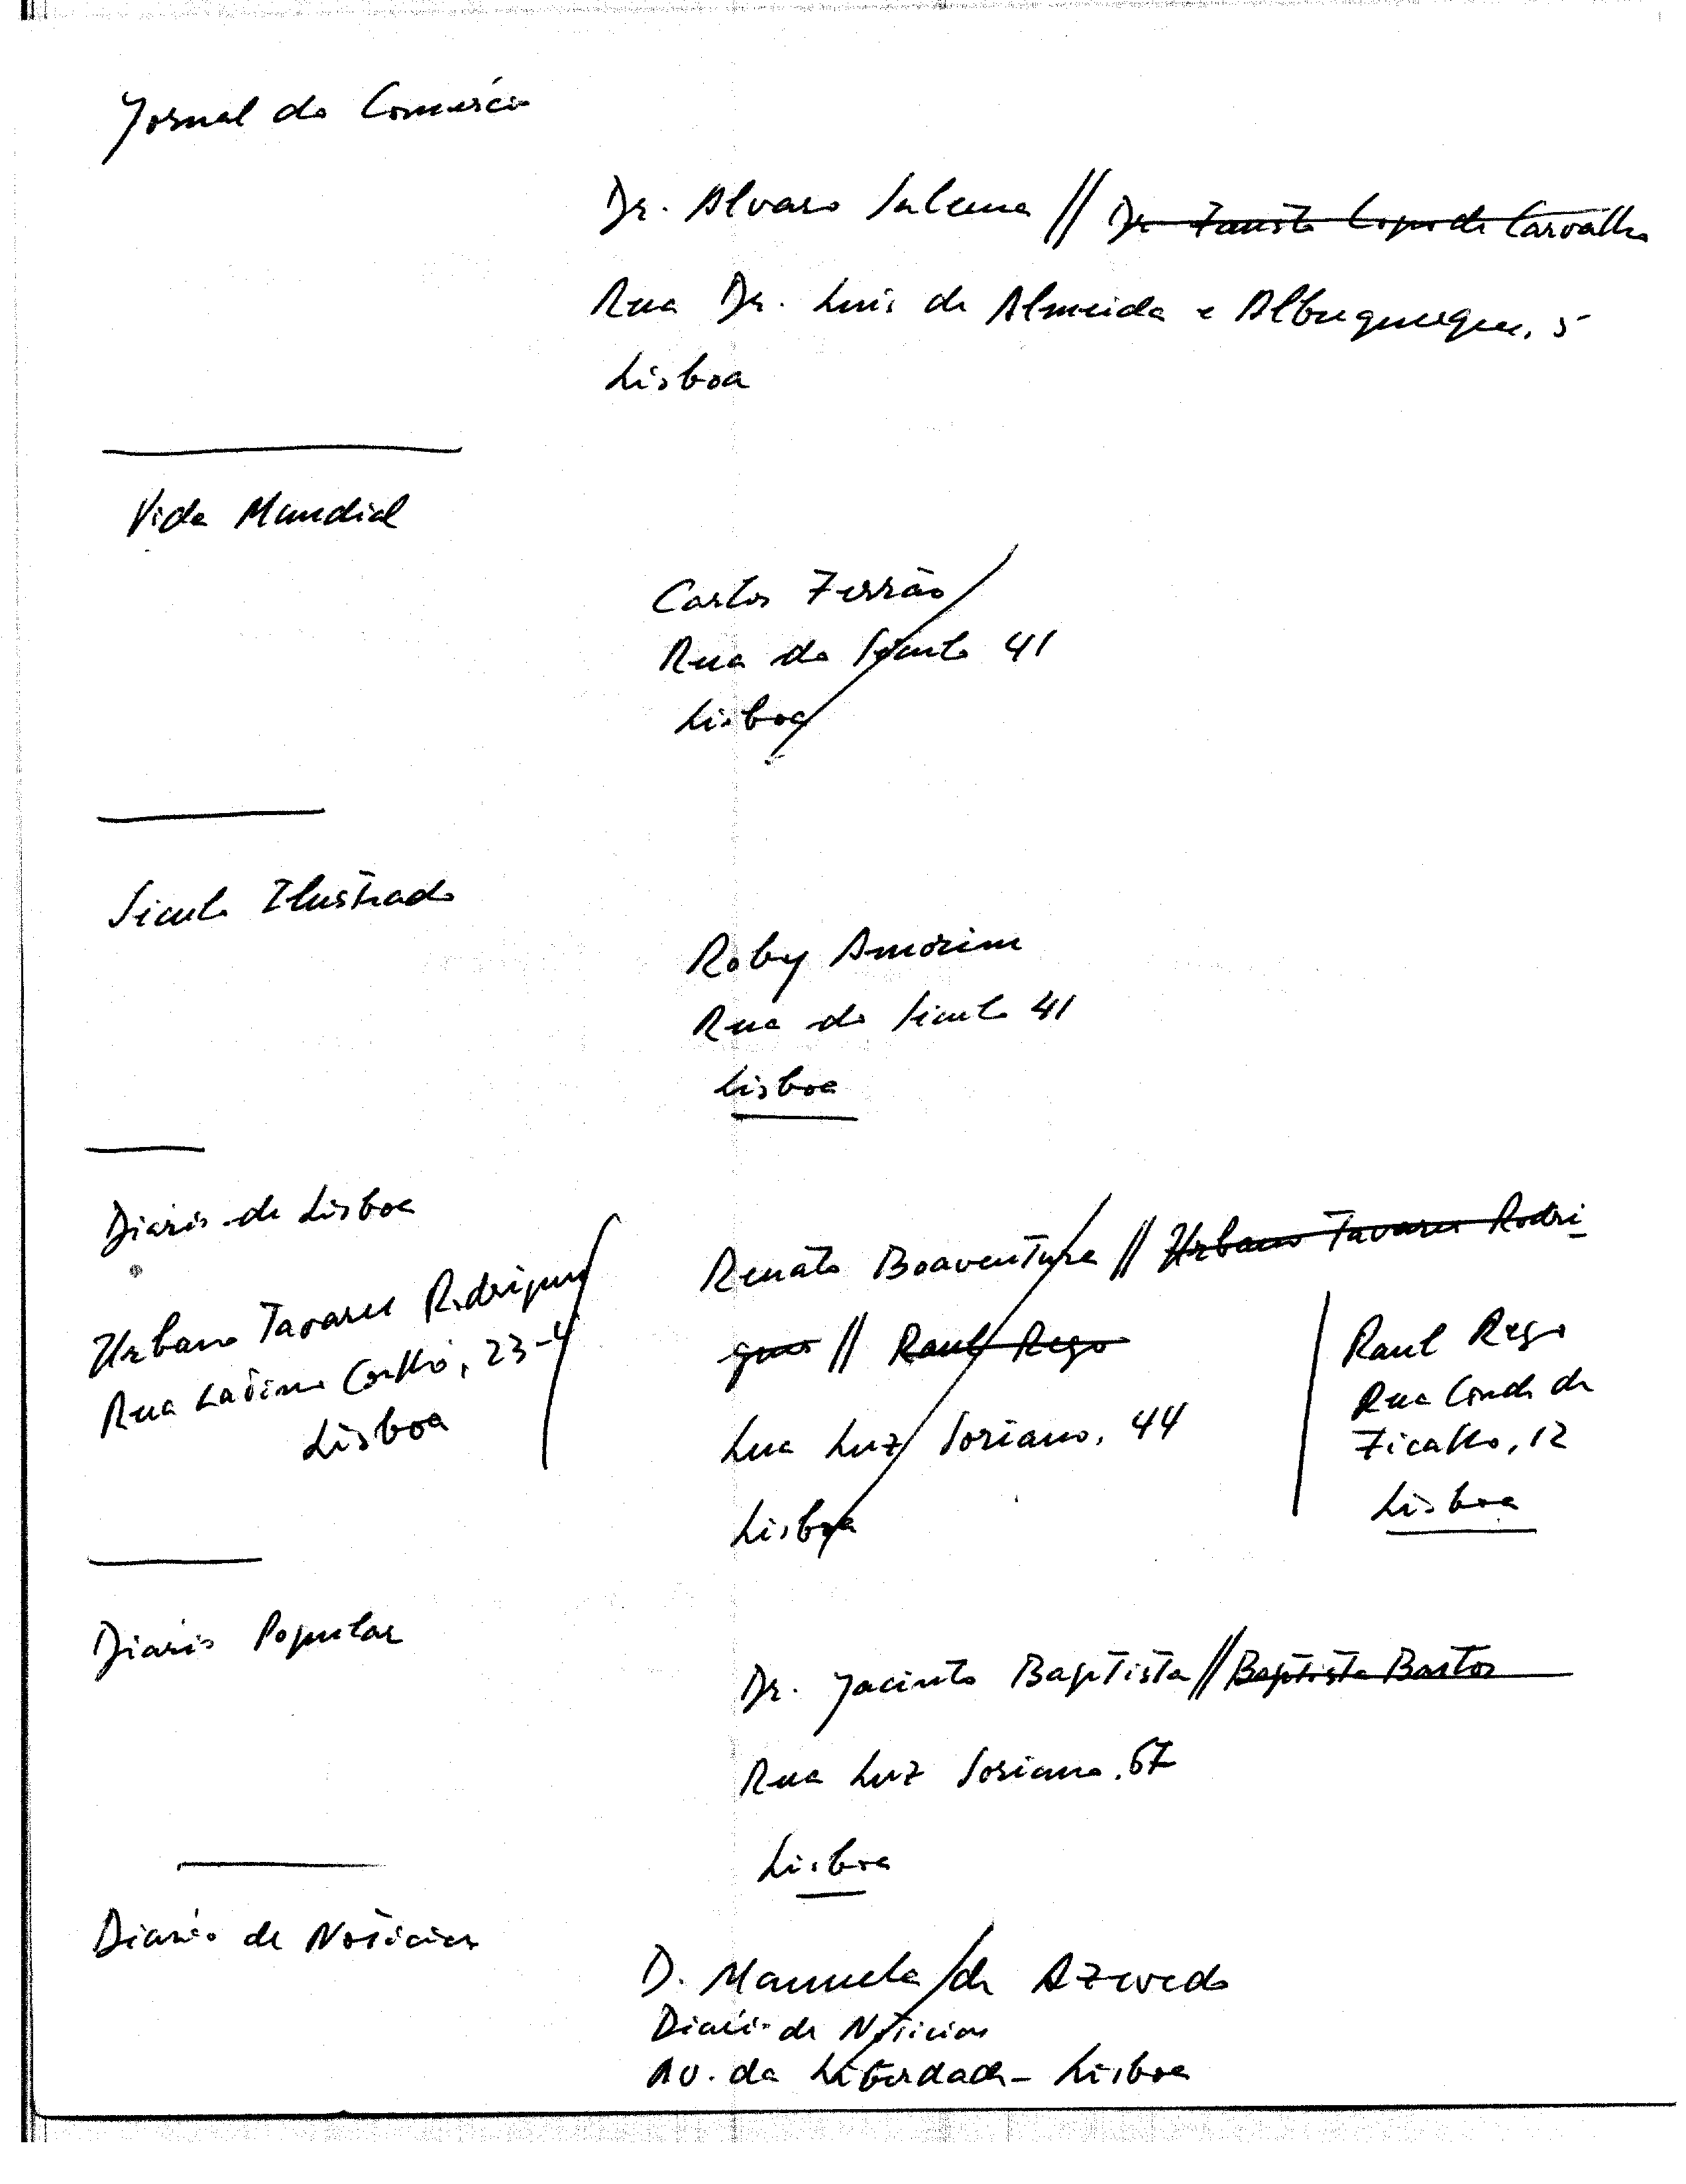 Jornal do Comércio
Dr. Alvaro Salema // Dr Fausto Lopo de Carvalho
Rua Dr. Luis de Almeida e Albuquerque, 5
Lisboa
Vida Mundial
Carlos Ferrão
Rua do Século 41
Lisboa
Século Ilustrado
Roby Amorim
Rua do Século 41
Lisboa
Diário de Lisboa
Urbano Tavares Rodrigues
Rua Latino Coelho, 23-4
Lisboa
Renato Boaventura // Urbano Tavares Rodri
gues // Raul Rego
Lua Luz Soriano, 44
Lisboa
Raul Rego
Rua Conde de
Ficalho, 12
Lisboa
Diário Popular
Dr. Jacinto Baptista // Baptista Bastos
Rua Luz Soriano, 67
Lisboa
Diário de Notícias
D. Manuela de Azevedo
Diário de Notícias
Av. da Liberdade - Lisboa